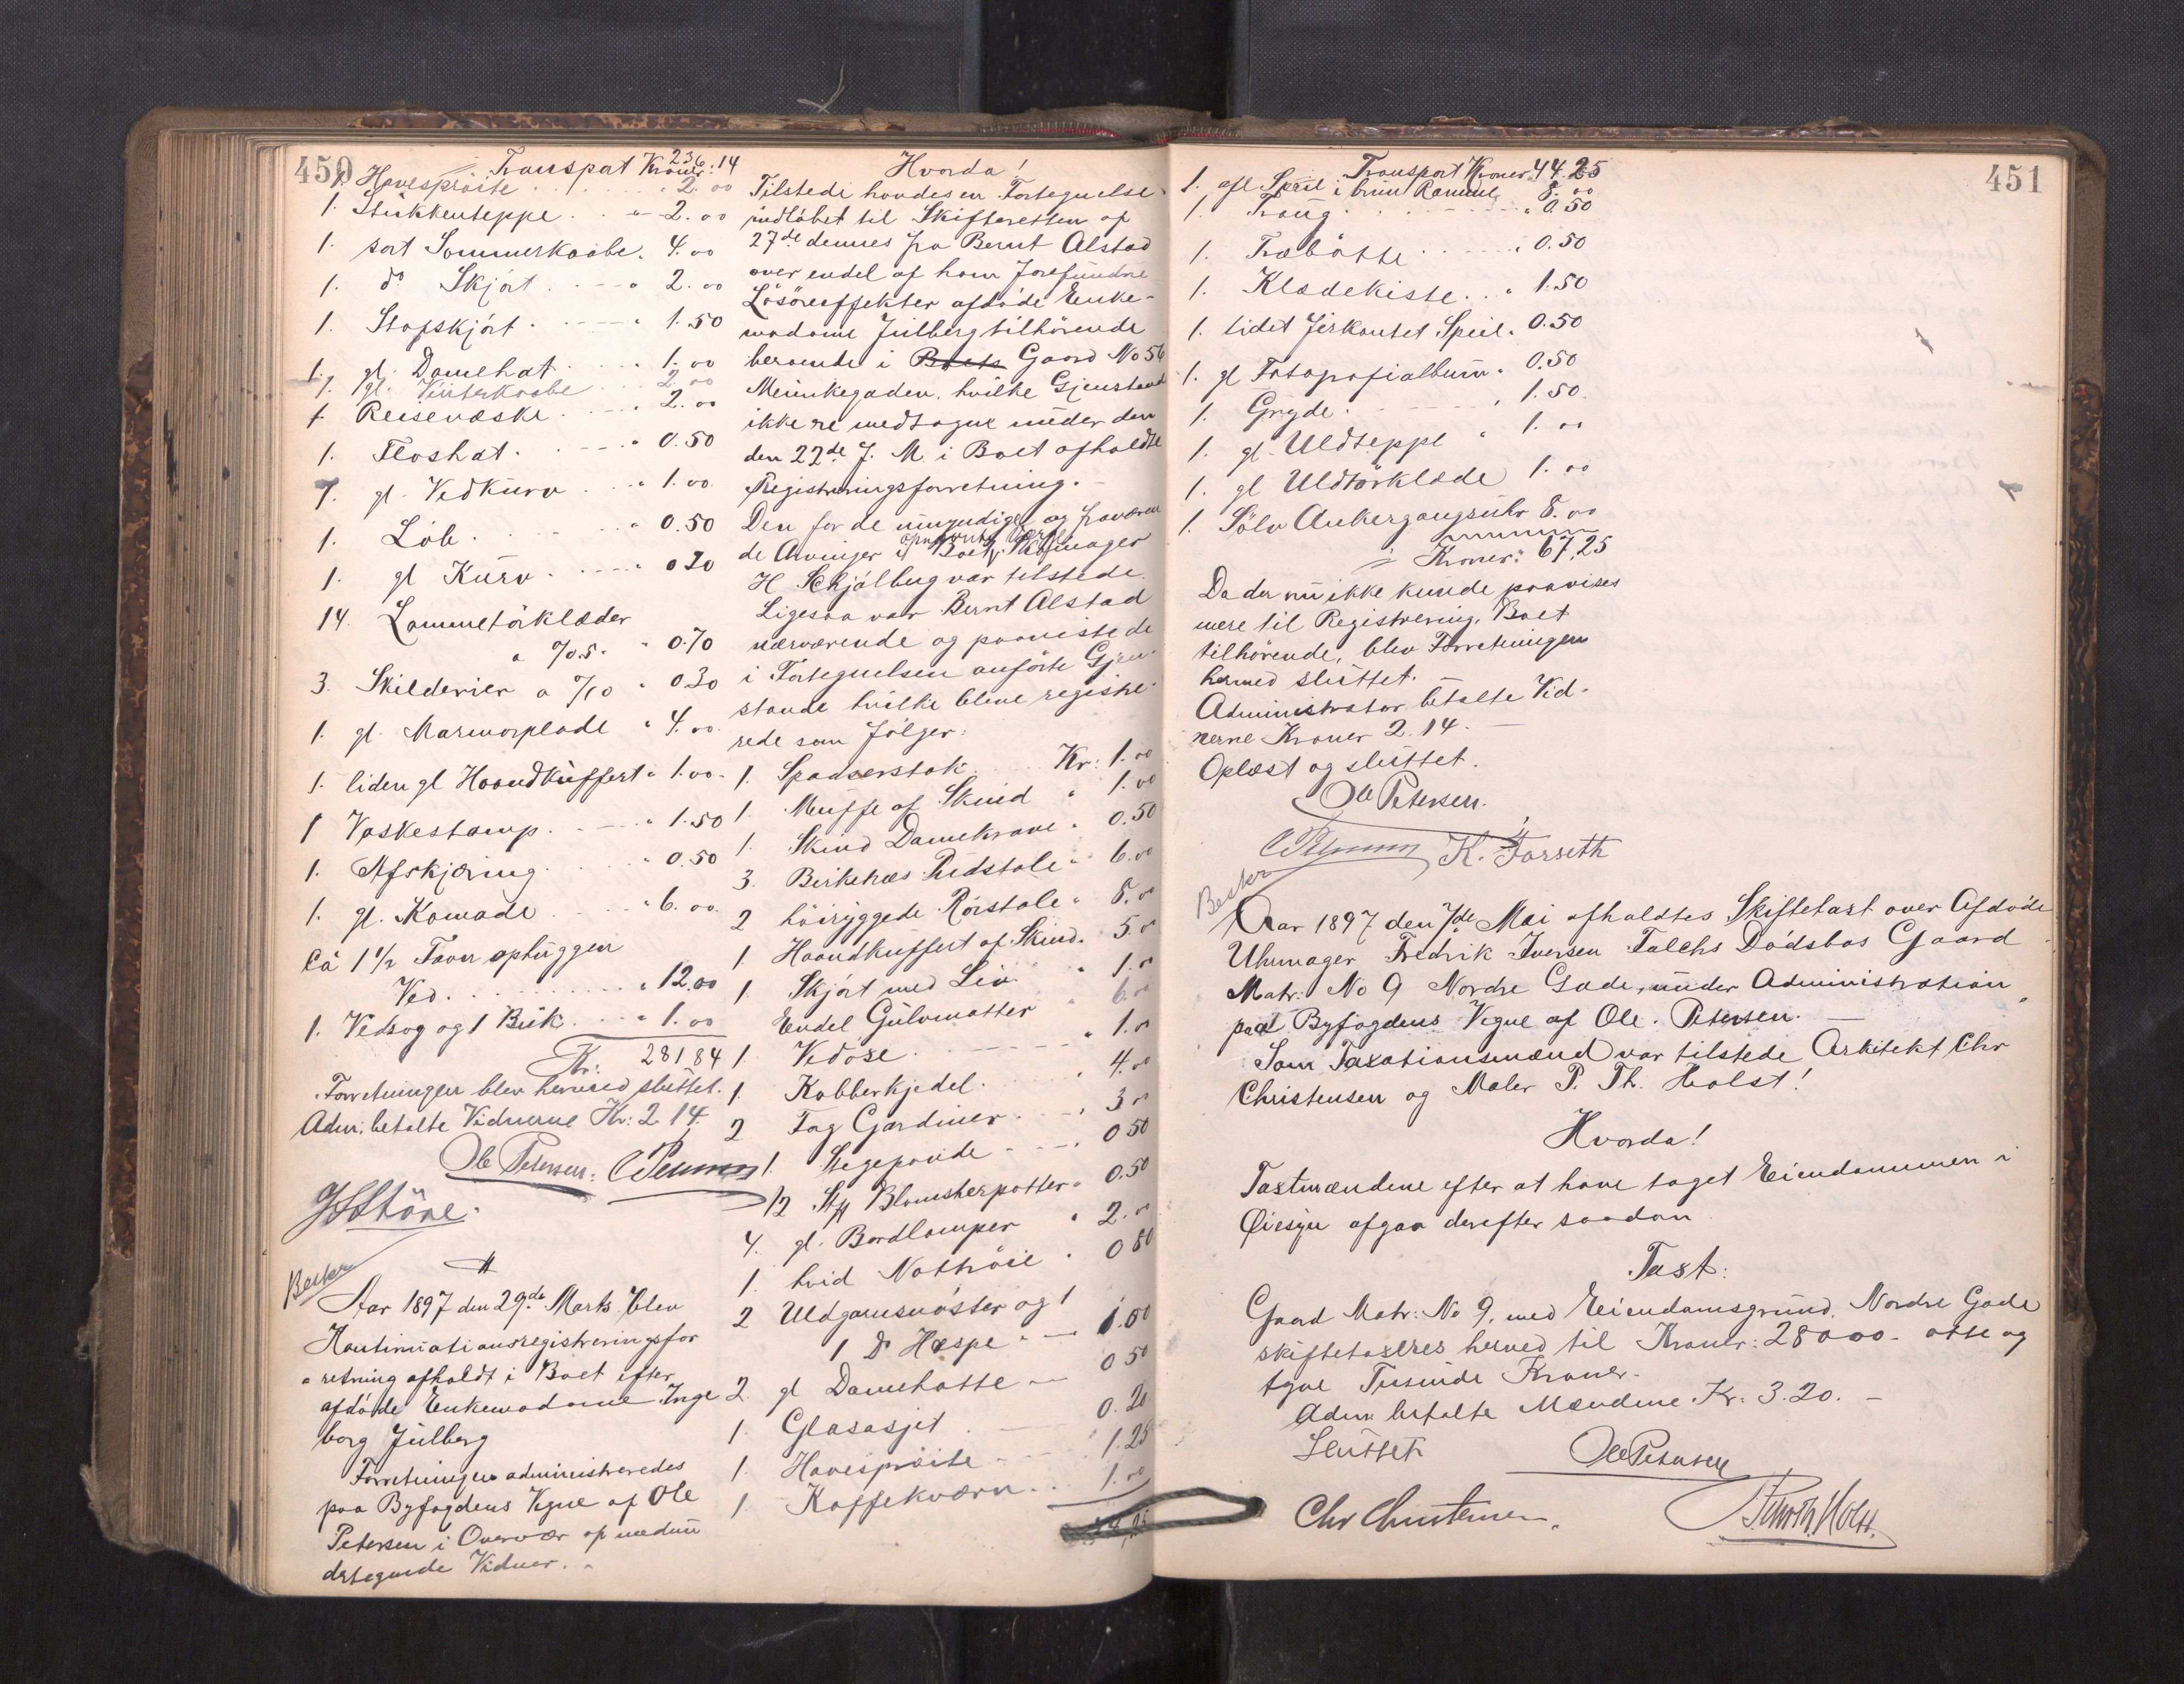 450
Transport Kroner: 236.14
1. Havesprøite . . . " 2.00
1. Stükkenteppe . . " 2.00
1. sort Sommerkaabe . 4.00
1. do Skjørt . . . " 2.00
1. Stofskjørt . . . " 1.50
1. gl. Damehat . . . " 1.00
1. gl. Vinterkaabe . . 2.00
1 Reisevæske . . . " 2.00
1. Floshat . . . " 0.50
1. gl. Vedkurv . . . " 1.00
1. Løb . . . " 0.50
1. gl Kurv . . . " 020
14. Lommetörklæder
a %05. " 0.70
3. Skilderier a %10 " 030
1. gl. Marmorplade " 4.00
1. liden gl Haandküffert " 1.00
1 Vaskestamp . . . " 1.50
1. Afskjæring . . . " 0.50
1. gl. Komode . . . " 6.00
Ca 1 1/2 Favn ophüggen
Ved . . . " 12.00
1. Vedsag og 1 Bük . . " 1.00
Kr: 281 84
Forretningen blev hermed slüttet.
Adm: betalte Vidnerne Kr: 2.14.
Ole Petersen.
Beskr
Aar 1897 den 29de Marts blev
Kontinüationsregistreringsfor
retning afholdt i Boet efter
afdøde Enkemadame Inge
borg Jülberg
Forretningen administreredes
paa Byfogdens Vegne af Ole
Petersen i Overvær af nedün
dertegnede Vidner.
Hvorda!
Tilstede havdes en Fortegnelse
indløbet til Skifteretten af
27de dennes fra Bernt Alstad
over endel af ham forefundne
Løsöreeffekter afdøde Enke-
madame Jülberg tilhörende
beroende i Boets Gaard No 56
Meinkegaden, hvilke Gjenstand
ikke re medtagne under den
den 22de J. M. i Boet afholdte
Registreringsforretning.
Den for de umyndige og fraværen
de Arvinger i Boet opnævnte Værge Skomager
H. Schjølberg var tilstede.
Ligesaa var Bernt Alstad
nærværende og paaviste de
i Fortegnelsen anførte Gjen-
stande hvilke bleve registre-
rede som følger:
1. Spaserstok Kr: 1.00
1. Muffe af Skind " 1.00
1. Skind Damekrave " 0.50
3. Birketræs Pudstole " 6.00
2 höiryggede Rørstole " 8.00
1 Haandkuffert af Skind " 5.00
1. Skjørt med Liv " 1.00
Endel Gülvmatter " 6.00
1. Vedøxe . . . " 1.00
1. Kobberkjedel . . . " 4.00
2 Fag Gardiner . . . " 3.00
1. Stegepande . . . " 0 50
12 Stk Blomsterpotter " 0.50
4. gl. Bordlamper " 2.00
1. hvid Nattrøie " 0 80
2 Uldgarnsnøster og 1
1 Do Hespe " 1.00
2. gl Damehatte " 0 50
1. Glasasjet . . 0.20
1. Havesprøite . . 1.25
1. Kaffekværn . . 1.00
451
Transport Kroner 44.25
1. afl. Speil i brun Ramme 8.00
1. Traug . . . " 0.50
1. Træbøtte . . . " 0.50
1. Klædekiste . . " 1.50
1. lidet firkantet Speil . 0.50
1. gl Fotografialbum . 0.50
1. Gryde . . . " 1.50
1. gl. Uldteppe " 1.00
1. gl Uldtörklæde 1.00
1. Sölv Ankergangsuhr 8.00
Kroner: 67,25
Da der nü ikke kunde paavises
mere til Registrering, Boet
tilhørende, blev Forretningen
hermed slüttet.
Administrator betalte Vid-
nerne Kroner 2.14.
Oplæst og slüttet.
Ole Petersen.
K. Forseth
Beskr
Aar 1897 den 7de Mai afholdtes Skiftetaxt over Afdøde
Uhrmager Fredrik Iversen Falchs Dødsbos Gaard
Matr: No 9 Nordre Gade, under Administration
paa Byfogdens Vegne af Ole Petersen.
Som Taxationsmænd var tilstede Arkitekt Chr
Christensen og Maler P. Th. Holst!
Hvorda!
Taxtmændene efter at have taget Eiendommen i
Øiesyn afgav derefter saadan
Taxt:
Gaard Matr: No 9, med Eiendomsgrund, Nordre Gade
skiftetaxeres herved til Kroner: 28000 - otte og
tyve Tusinde Kroner.
Adm betalte Mændene Kr. 3.20.
Slüttet
Ole Petersen
Chr Christensen.